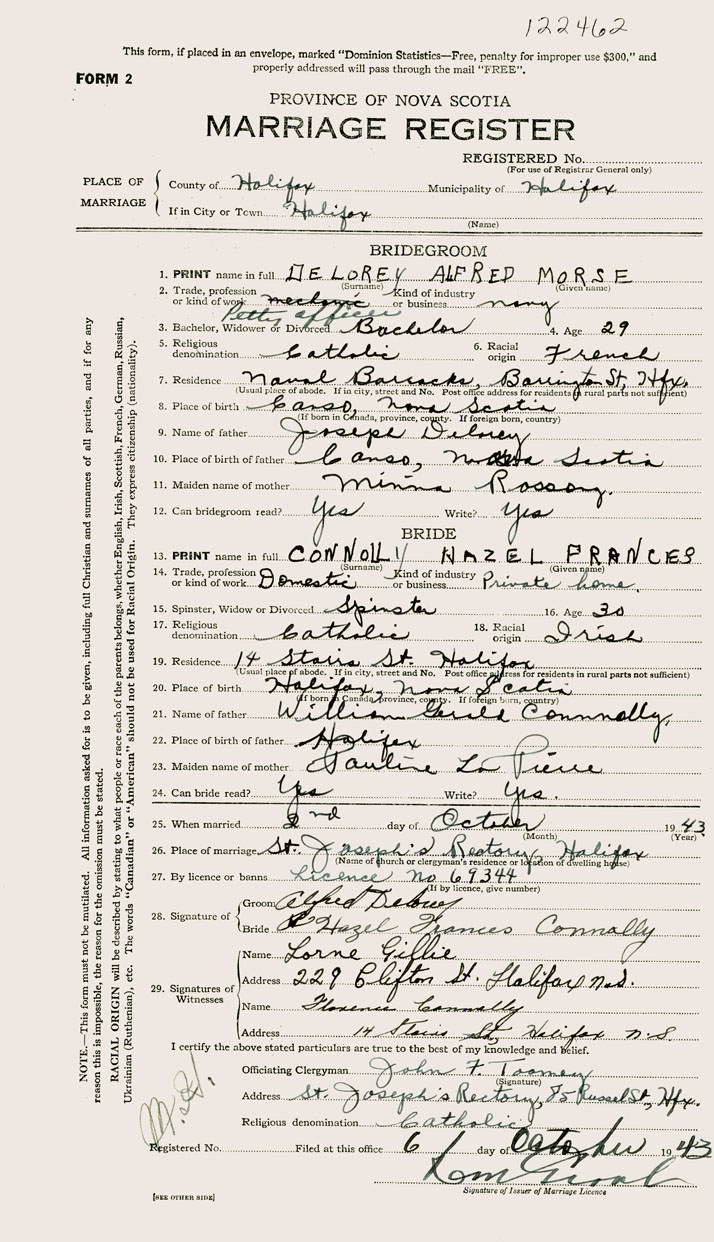 122462
This form, if placed in an envelope, marked "Dominion Statistics—Free, penalty for improper use $300," and
properly addressed will pass through the mail "FREE".
FORM 2
PROVINCE OF NOVA SCOTIA
MARRIAGE REGISTER
REGISTERED No.
(For use of Registrar General only)
PLACE OF MARRIAGE
County of Halifax Municipality of Halifax
If in City or Town Halifax
(Name)
BRIDEGROOM
1. PRINT name in full DELOREY ALFRED MORSE
(Surname) (Given name)
2. Trade, profession or kind of work mechanic Petty officer Kind of industry or business navy
3. Bachelor, Widower or Divorced Bachelor 4. Age 29
5. Religious denomination Catholic 6. Racial origin French
7. Residence Naval Barracks, Barrington St, Hfx.
(Usual place of abode. If in city, street and No. Post office address for residents in rural parts not sufficient)
8. Place of birth Canso, Nova Scotia
(If born in Canada, province, county. If foreign born, country)
9. Name of father Joseph Delorey
10. Place of birth of father Canso, Nova Scotia
11. Maiden name of mother Minna
12. Can bridegroom read? Yes Write? Yes
BRIDE
13. PRINT name in full CONNOLLY HAZEL FRANCES
(Surname) (Given name)
14. Trade, profession or kind of work Domestic Kind of industry or business Private home.
15. Spinster, Widow or Divorced Spinster 16. Age 30
17. Religious denomination Catholic 18. Racial origin Irish
19. Residence 14 Stairs St. Halifax
(Usual place of abode. If in city, street and No. Post office address for residents in rural parts not sufficient)
20. Place of birth Halifax, Nova Scotia
(If born in Canada, province, county. If foreign born, country)
21. Name of father William Gerald Connnolly,
22. Place of birth of father Halifax
23. Maiden name of mother Pauline La Pierre
24. Can bride read? Yes Write? Yes.
25. When married 2nd day of October 1943
(Month) (Year)
26. Place of marriage St. Joseph's Rectory, Halifax
(Name of church or clergyman's residence or location of dwelling house)
27. By licence or banns Licence no 69344
(If by licence, give number)
28. Signature of
Groom Alfred Delorey
Bride Hazel Frances Connolly
29. Signatures of Witnesses
Name Lorne Gillie
Address 229 Clifton St. Halifax N.S.
Name Florence Connolly
Address 14 Stairs St, Halifax N.S.
I certify the above stated particulars are true to the best of my knowledge and belief.
Officiating Clergyman John F. Toomey
(Signature)
Address St. Joseph's Rectory, 85 Russel St., Hfx.
Religious denomination Catholic
Registered No. Filed at this office 6 day of October 1943
Signature of Issuer of Marriage Licence
[SEE OTHER SIDE]
NOTE.—This form must not be mutilated. All information asked for is to be given, including full Christian and surnames of all parties, and if for any
reason this is impossible, the reason for the omission must be stated.
RACIAL ORIGIN will be described by stating to what people or race each of the parents belongs, whether English, Irish, Scottish, French, German, Russian,
Ukrainian (Ruthenian), etc. The words "Canadian" or "American" should not be used for Racial Origin. They express citizenship (nationality).